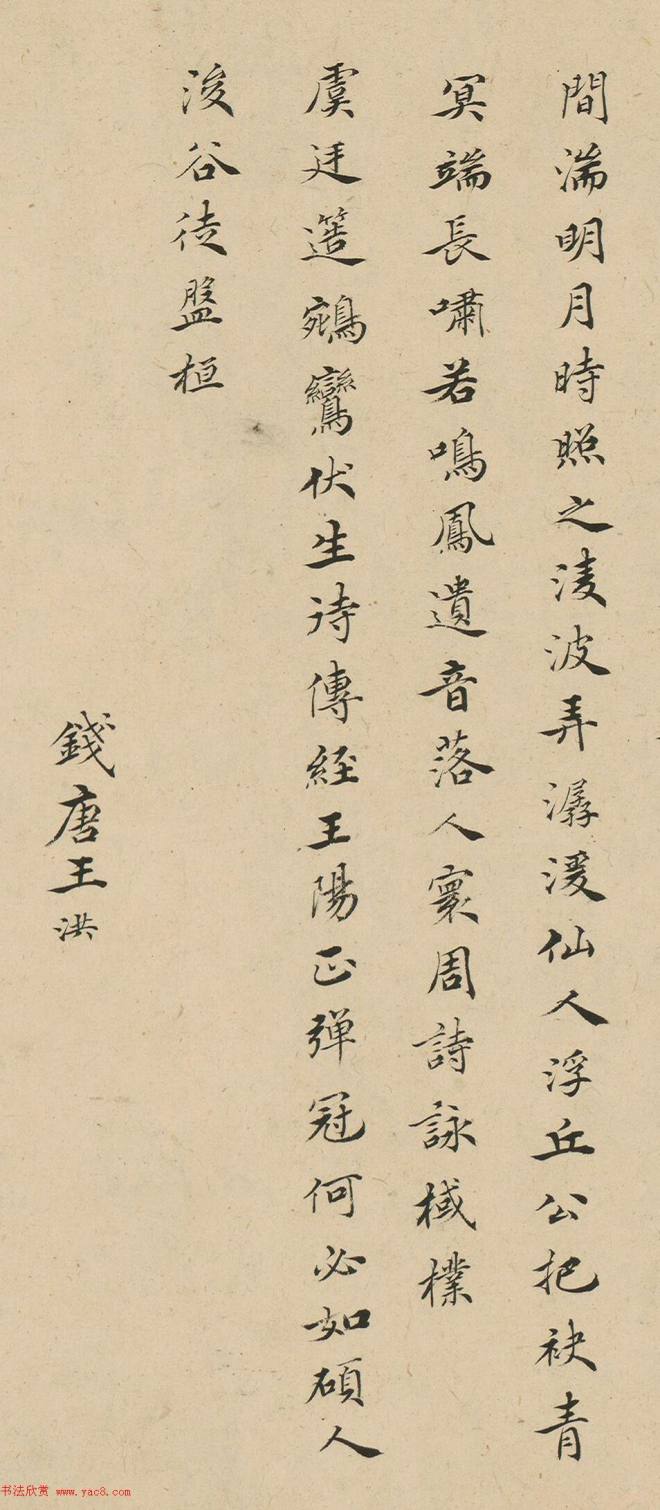 間湍明月時照之淩波弄潺湲仙人浮丘公把袂青
冥端長嘯若鳴鳳遺音落人寰周詩詠棫樸
虞廷簉鵷鸞伏生待傳經王陽正彈冠何必如碩人
浚谷徒盤桓
錢唐王洪
书法欣赏 www.yac8.com